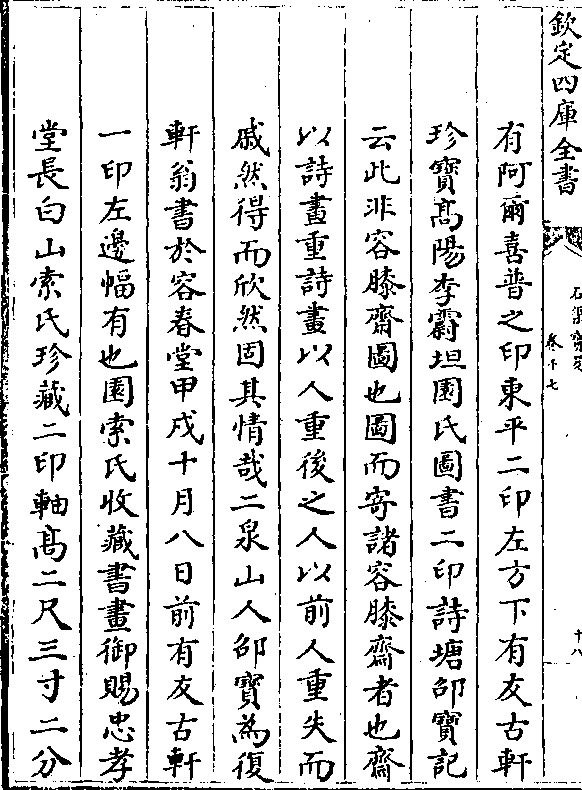 欽定四庫全書
卷十七
十八
有阿爾喜普之印東平二印左方下有友古軒
珍寶髙陽李霨坦園氏圖書二印詩塘邵寶記
云此非容膝齋圖也圖而寄諸容膝齋者也齋
以詩畫重詩畫以人重後之人以前人重失而
戚然得而欣然固其情哉二泉山人邵寶為復
軒翁書於容春堂甲戌十月八日前有友古軒
一印左邊幅有也園索氏收藏書畫御賜忠孝
堂長白山索氏珍藏二印軸髙二尺三寸二分